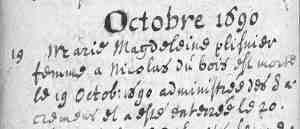 Octobre 1690
19 Marie Magdeleine plisnier
femme a Nicolas du bois est morte
le 19 Octob: 1690 administree des Sa
cremens et a este enterree le 20.